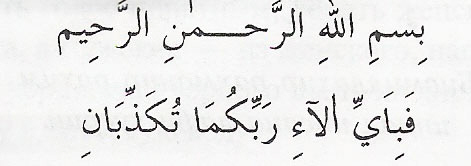 بِسْمِ اللهِ الرَّحْمٰنِ الرَّحِيمِ
فَبِايِّ الآءِ رَبِّكُمَا تُكَذِّبَانِ